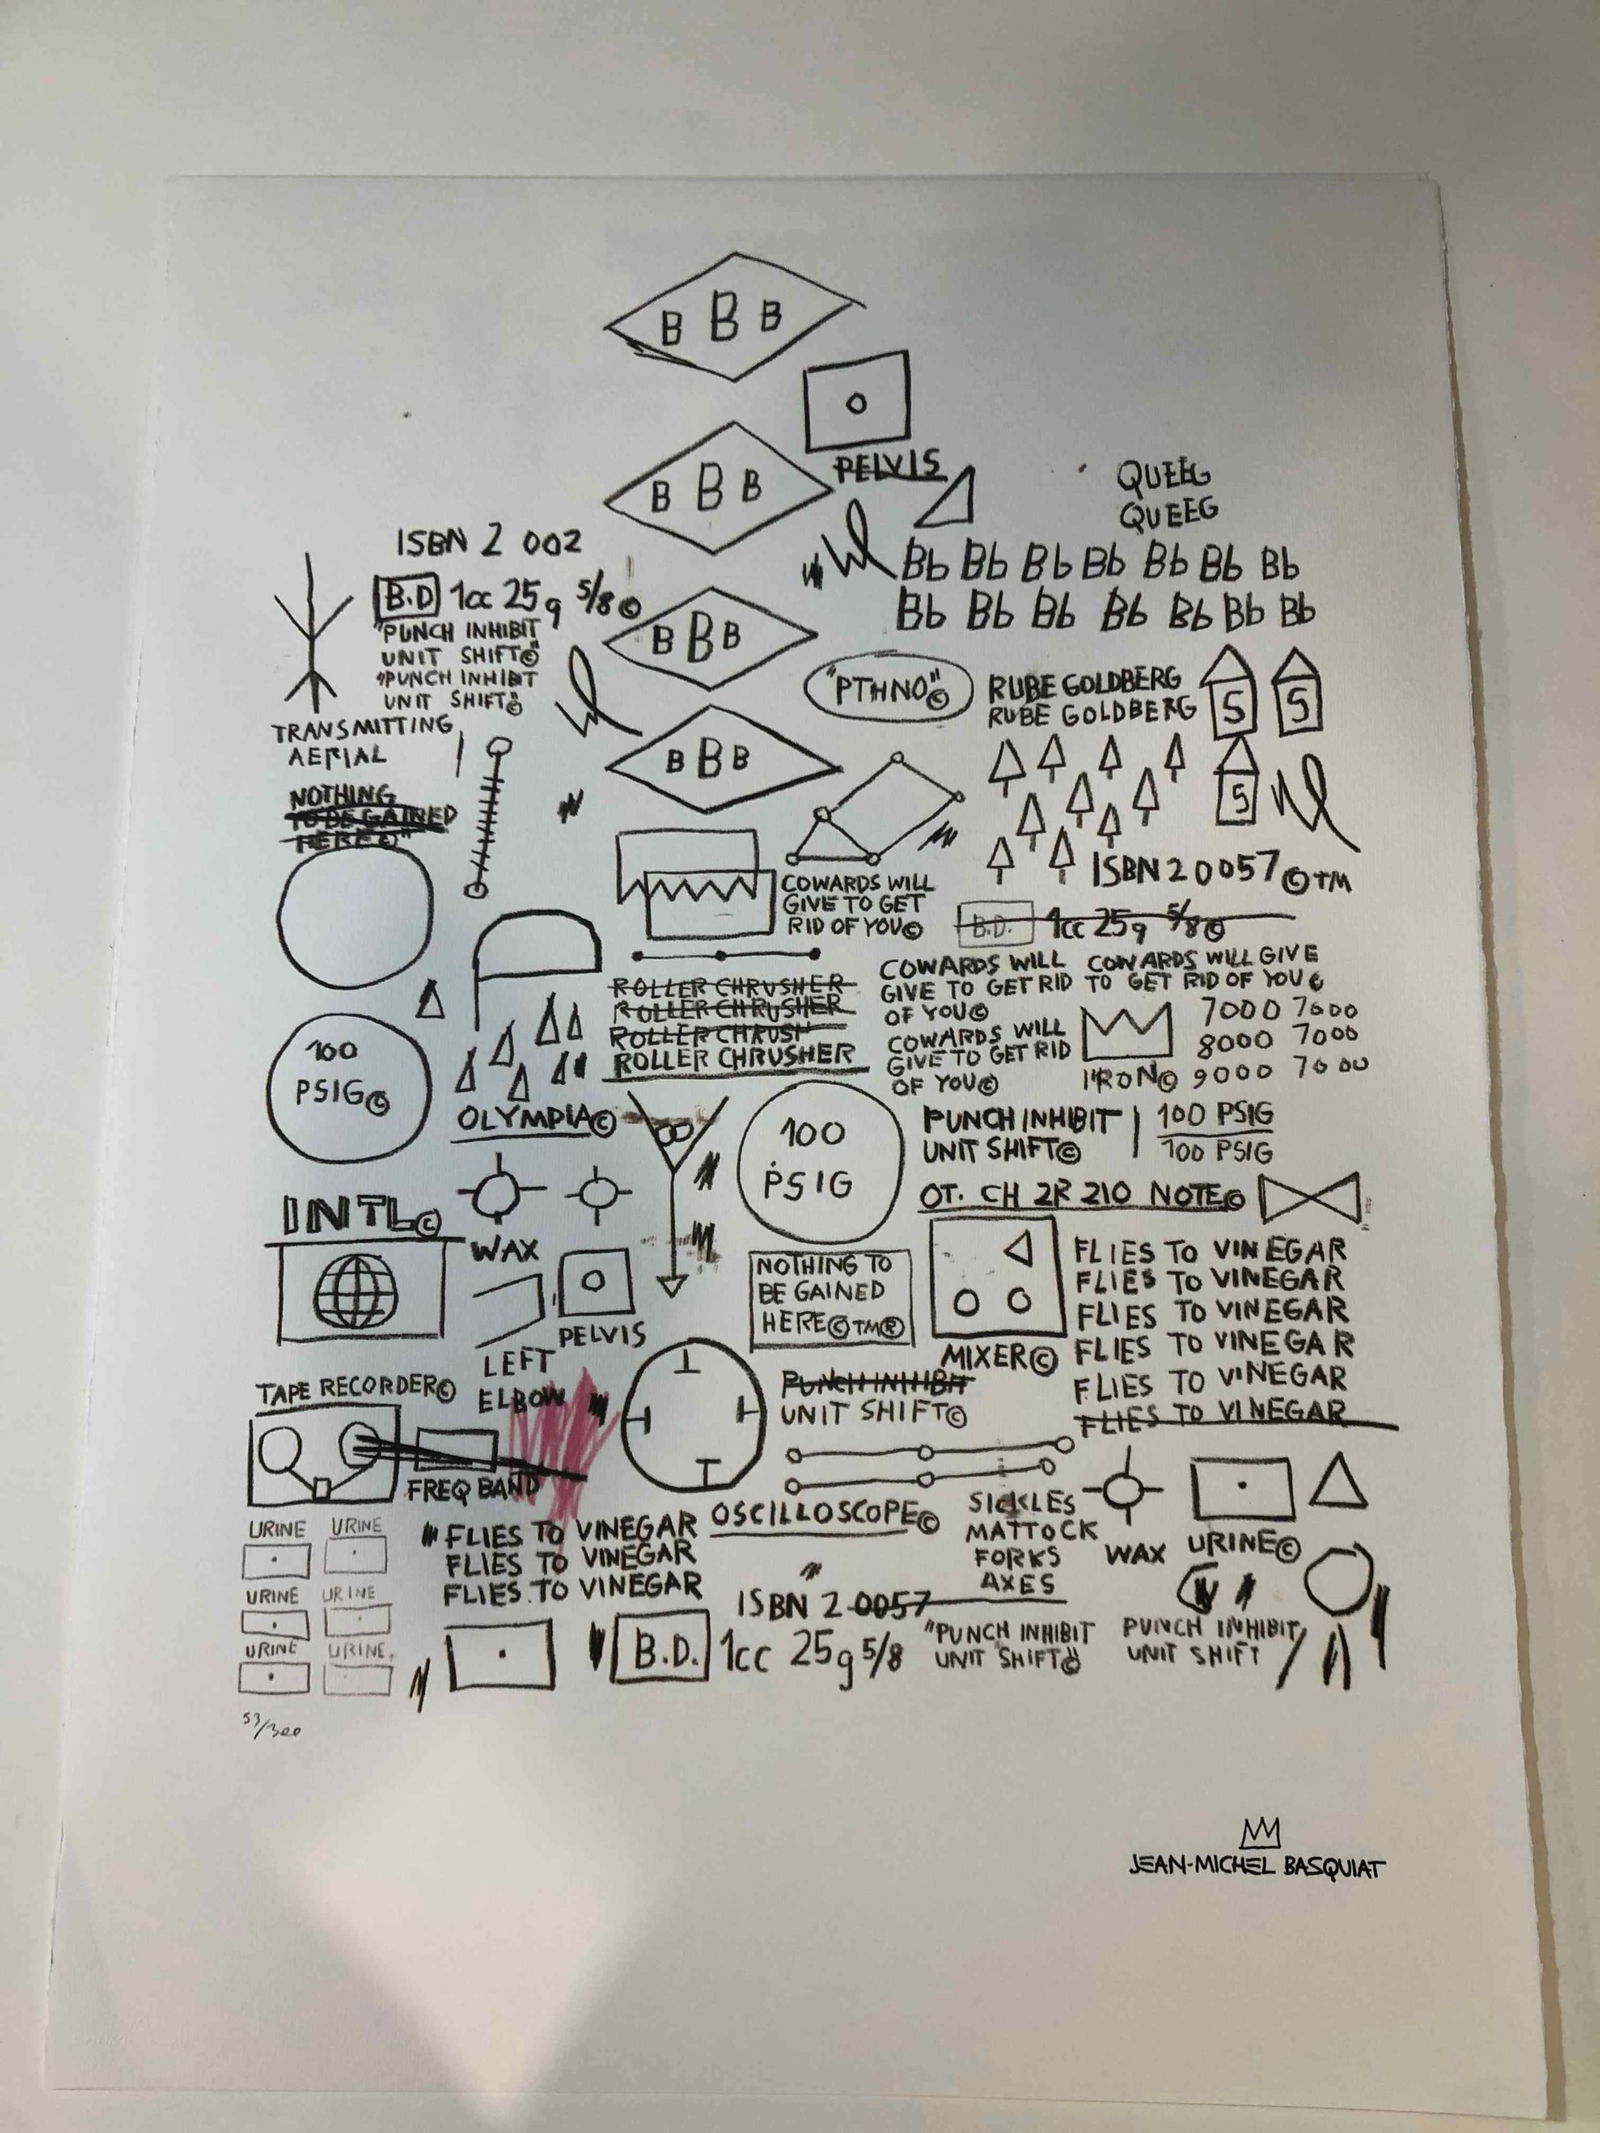 B B B
PELVIS
B B B
QUEEG
QUEEG
ISBN 2 002
Bb Bb Bb Bb Bb Bb Bb
B.D 1cc 25g 5/8©
Bb Bb Bb Bb Bb Bb Bb
"PUNCH INHIBIT
UNIT SHIFT©"
"PUNCH INHIBIT
UNIT SHIFT©"
B B B
"PTHNO"©
RUBE GOLDBERG
RUBE GOLDBERG
S S
TRANSMITTING
AERIAL
B B B
S
NOTHING
TO BE GAINED
HERE©"
COWARDS WILL
GIVE TO GET
RID OF YOU©
ISBN 2 0057©TM
B.D. 1cc 25g 5/8©
COWARDS WILL
GIVE TO GET RID
OF YOU©
COWARDS WILL GIVE
TO GET RID OF YOU©
COWARDS WILL
GIVE TO GET RID
OF YOU©
ROLLER CHRUSHER
ROLLER CHRUSHER
ROLLER CHRUSH
ROLLER CHRUSHER
7000 7000
8000 7000
9000 7000
IRON©
100
PSIG©
OLYMPIA©
100
PSIG
PUNCH INHIBIT
UNIT SHIFT©
100 PSIG
100 PSIG
OT. CH 2R 210 NOTE©
INTL©
WAX
PELVIS
LEFT
ELBOW
NOTHING TO
BE GAINED
HERE©TM®
MIXER©
FLIES TO VINEGAR
FLIES TO VINEGAR
FLIES TO VINEGAR
FLIES TO VINEGAR
FLIES TO VINEGAR
FLIES TO VINEGAR
TAPE RECORDER©
PUNCH INHIBIT
UNIT SHIFT©
FREQ BAND
OSCILLOSCOPE©
SICKLES
MATTOCK
FORKS
AXES
WAX
URINE©
URINE URINE
URINE URINE
URINE URINE
FLIES TO VINEGAR
FLIES TO VINEGAR
FLIES TO VINEGAR
ISBN 2 0057
B.D. 1cc 25g 5/8
"PUNCH INHIBIT
UNIT SHIFT©"
PUNCH INHIBIT
UNIT SHIFT
53/300
JEAN-MICHEL BASQUIAT